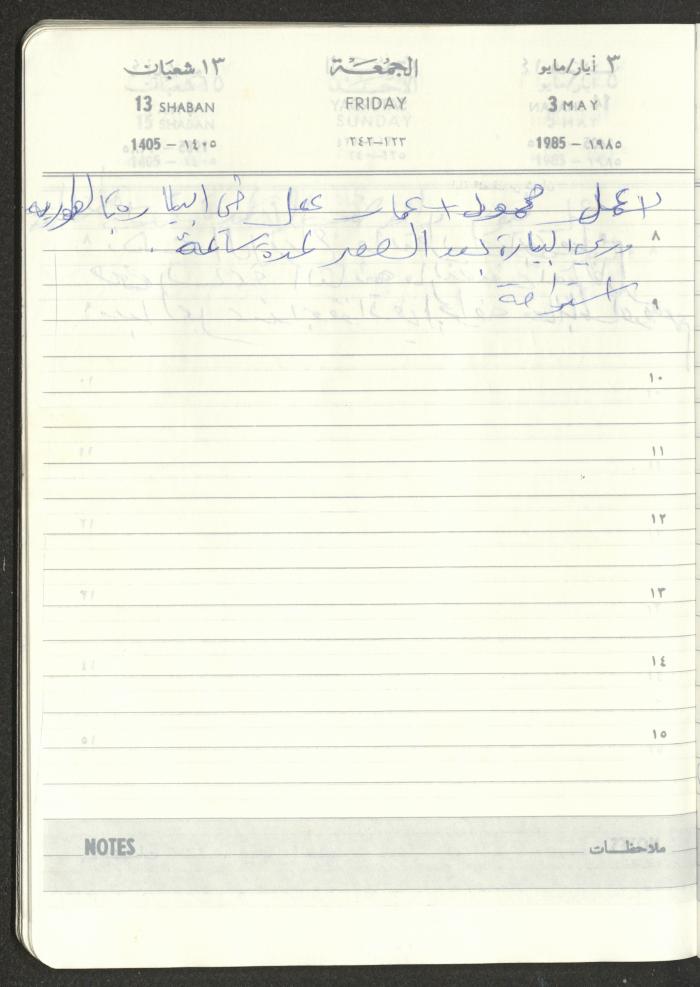 ٣ أيار/مايو الجمعة ١٣ شعبان
3 MAY FRIDAY 13 SHABAN
1985 – ١٩٨٥ ١٢٣–٢٤٢ 1405 – ١٤٠٥
محمود + عمار عمل في البيارة
وري البيارة بعد العصر لمدة ساعة .
٨
استراحة
٩
١٠
١١
١٢
١٣
١٤
١٥
ملاحظات NOTES